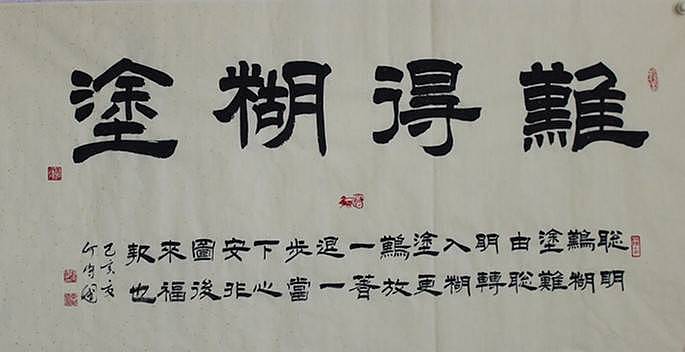 難得糊塗
聰明
難糊
塗難
由聰
明轉
入糊
塗更
難放
一著
退一
步當
下心
安非
圖後
來福
報也
己亥夏